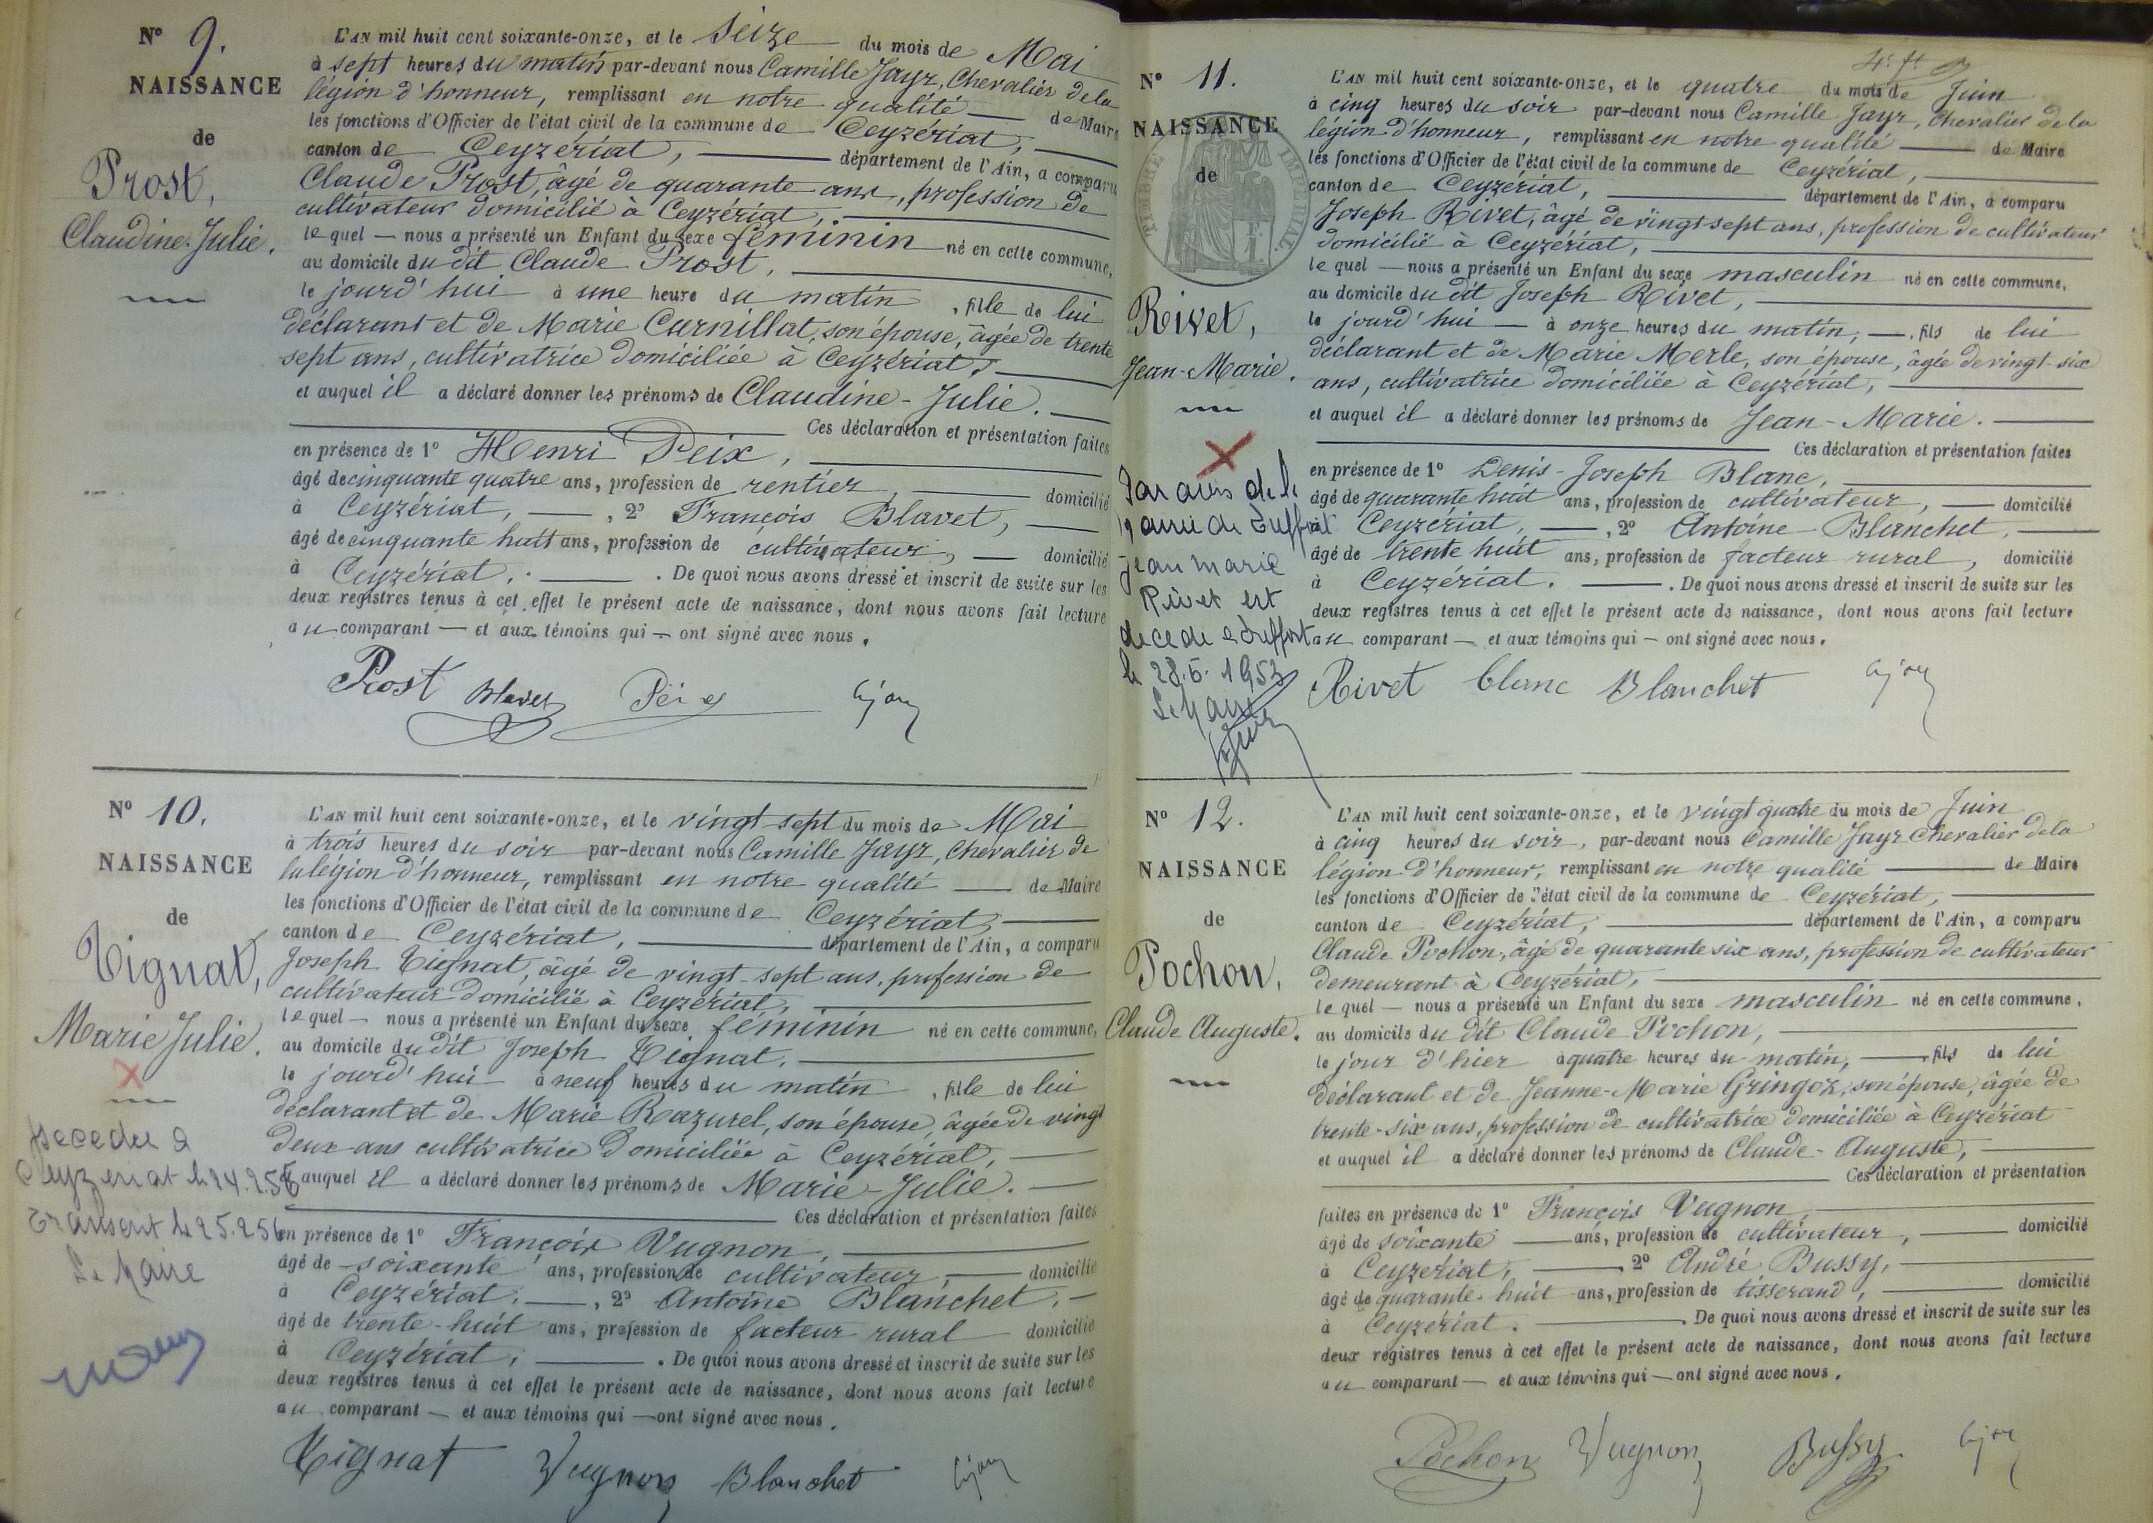 N° 9.
NAISSANCE
de
Prost,
Claudine-Julie.
L'AN mil huit cent soixante-onze, et le seize du mois de Mai
à sept heures du matin par-devant nous Camille Jayr, Chevalier de la
légion d'honneur, remplissant en notre qualité de Maire
les fonctions d'Officier de l'état civil de la commune de Ceyzériat,
canton de Ceyzériat, département de l'Ain, a comparu
Claude Prost, âgé de quarante ans, profession de
cultivateur domicilié à Ceyzériat,
le quel nous a présenté un Enfant du sexe féminin né en cette commune,
au domicile du dit Claude Prost,
le jourd'hui à une heure du matin, fille de lui
déclarant et de Marie Curnillat, son épouse, âgée de trente
sept ans, cultivatrice domiciliée à Ceyzériat,
et auquel il a déclaré donner les prénoms de Claudine-Julie.
Ces déclaration et présentation faites
en présence de 1° Henri Peix,
âgé de cinquante quatre ans, profession de rentier domicilié
à Ceyzériat, , 2° François Blavet,
âgé de cinquante huit ans, profession de cultivateur, domicilié
à Ceyzériat, . De quoi nous avons dressé et inscrit de suite sur les
deux registres tenus à cet effet le présent acte de naissance, dont nous avons fait lecture
au comparant et aux témoins qui ont signé avec nous.
Prost Blavet
N° 10.
NAISSANCE
de
Tignat,
Marie Julie.
decedee a
Ceyzeriat le 24.2.56
Transcrit le 25.2.56
Le Maire
L'AN mil huit cent soixante-onze, et le vingt-sept du mois de Mai
à trois heures du soir par-devant nous Camille Jayr, Chevalier de
la légion d'honneur, remplissant en notre qualité de Maire
les fonctions d'Officier de l'état civil de la commune de Ceyzériat,
canton de Ceyzériat, département de l'Ain, a comparu
Joseph Tignat, âgé de vingt-sept ans, profession de
cultivateur domicilié à Ceyzériat,
le quel nous a présenté un Enfant du sexe féminin né en cette commune,
au domicile du dit Joseph Tignat,
le jourd'hui à neuf heures du matin, fille de lui
déclarant et de Marie Razurel, son épouse, âgée de vingt
deux ans cultivatrice domiciliée à Ceyzériat,
et auquel il a déclaré donner les prénoms de Marie-Julie.
Ces déclaration et présentation faites
en présence de 1° François Vugnon,
âgé de soixante ans, profession de cultivateur, domicilié
à Ceyzériat, , 2° Antoine Blanchet,
âgé de trente-huit ans, profession de facteur rural domicilié
à Ceyzériat, . De quoi nous avons dressé et inscrit de suite sur les
deux registres tenus à cet effet le présent acte de naissance, dont nous avons fait lecture
au comparant et aux témoins qui ont signé avec nous.
Tignat Vugnon Blanchet
N° 11.
NAISSANCE
de
TIMBRE IMPÉRIAL
Rivet,
Jean-Marie.
Par avis de le
maire de Treffort
Jean Marie
Rivet est
decede a Treffort
le 28.5.1953
Le Maire
L'AN mil huit cent soixante-onze, et le quatre du mois de Juin
à cinq heures du soir par-devant nous Camille Jayr, Chevalier de la
légion d'honneur, remplissant en notre qualité de Maire
les fonctions d'Officier de l'état civil de la commune de Ceyzériat,
canton de Ceyzériat, département de l'Ain, a comparu
Joseph Rivet, âgé de vingt-sept ans, profession de cultivateur
domicilié à Ceyzériat,
le quel nous a présenté un Enfant du sexe masculin né en cette commune,
au domicile du dit Joseph Rivet,
le jourd'hui à onze heures du matin, fils de lui
déclarant et de Marie Merle, son épouse, âgée de vingt-six
ans, cultivatrice domiciliée à Ceyzériat,
et auquel il a déclaré donner les prénoms de Jean-Marie.
Ces déclaration et présentation faites
en présence de 1° Denis-Joseph Blanc,
âgé de quarante huit ans, profession de cultivateur, domicilié
à Ceyzériat, , 2° Antoine Blanchet,
âgé de trente huit ans, profession de facteur rural, domicilié
à Ceyzériat. . De quoi nous avons dressé et inscrit de suite sur les
deux registres tenus à cet effet le présent acte de naissance, dont nous avons fait lecture
au comparant et aux témoins qui ont signé avec nous.
Rivet blanc Blanchet
N° 12.
NAISSANCE
de
Pochon,
Claude Auguste.
L'AN mil huit cent soixante-onze, et le vingt quatre du mois de Juin
à cinq heures du soir, par-devant nous Camille Jayr Chevalier de la
légion d'honneur, remplissant en notre qualité de Maire
les fonctions d'Officier de l'état civil de la commune de Ceyzériat,
canton de Ceyzériat, département de l'Ain, a comparu
Claude Pochon, âgé de quarante six ans, profession de cultivateur
demeurant à Ceyzériat,
le quel nous a présenté un Enfant du sexe masculin né en cette commune,
au domicile du dit Claude Pochon,
le jour d'hier à quatre heures du matin, fils de lui
déclarant et de Jeanne-Marie Gringoz, son épouse, âgée de
trente-six ans, profession de cultivatrice domiciliée à Ceyzériat
et auquel il a déclaré donner les prénoms de Claude-Auguste,
Ces déclaration et présentation
faites en présence de 1° François Vugnon,
âgé de soixante ans, profession de cultivateur, domicilié
à Ceyzériat, , 2° André Bussy,
âgé de quarante-huit ans, profession de tisserand, domicilié
à Ceyzériat. . De quoi nous avons dressé et inscrit de suite sur les
deux registres tenus à cet effet le présent acte de naissance, dont nous avons fait lecture
au comparant et aux témoins qui ont signé avec nous.
Pochon Vugnon Bussy